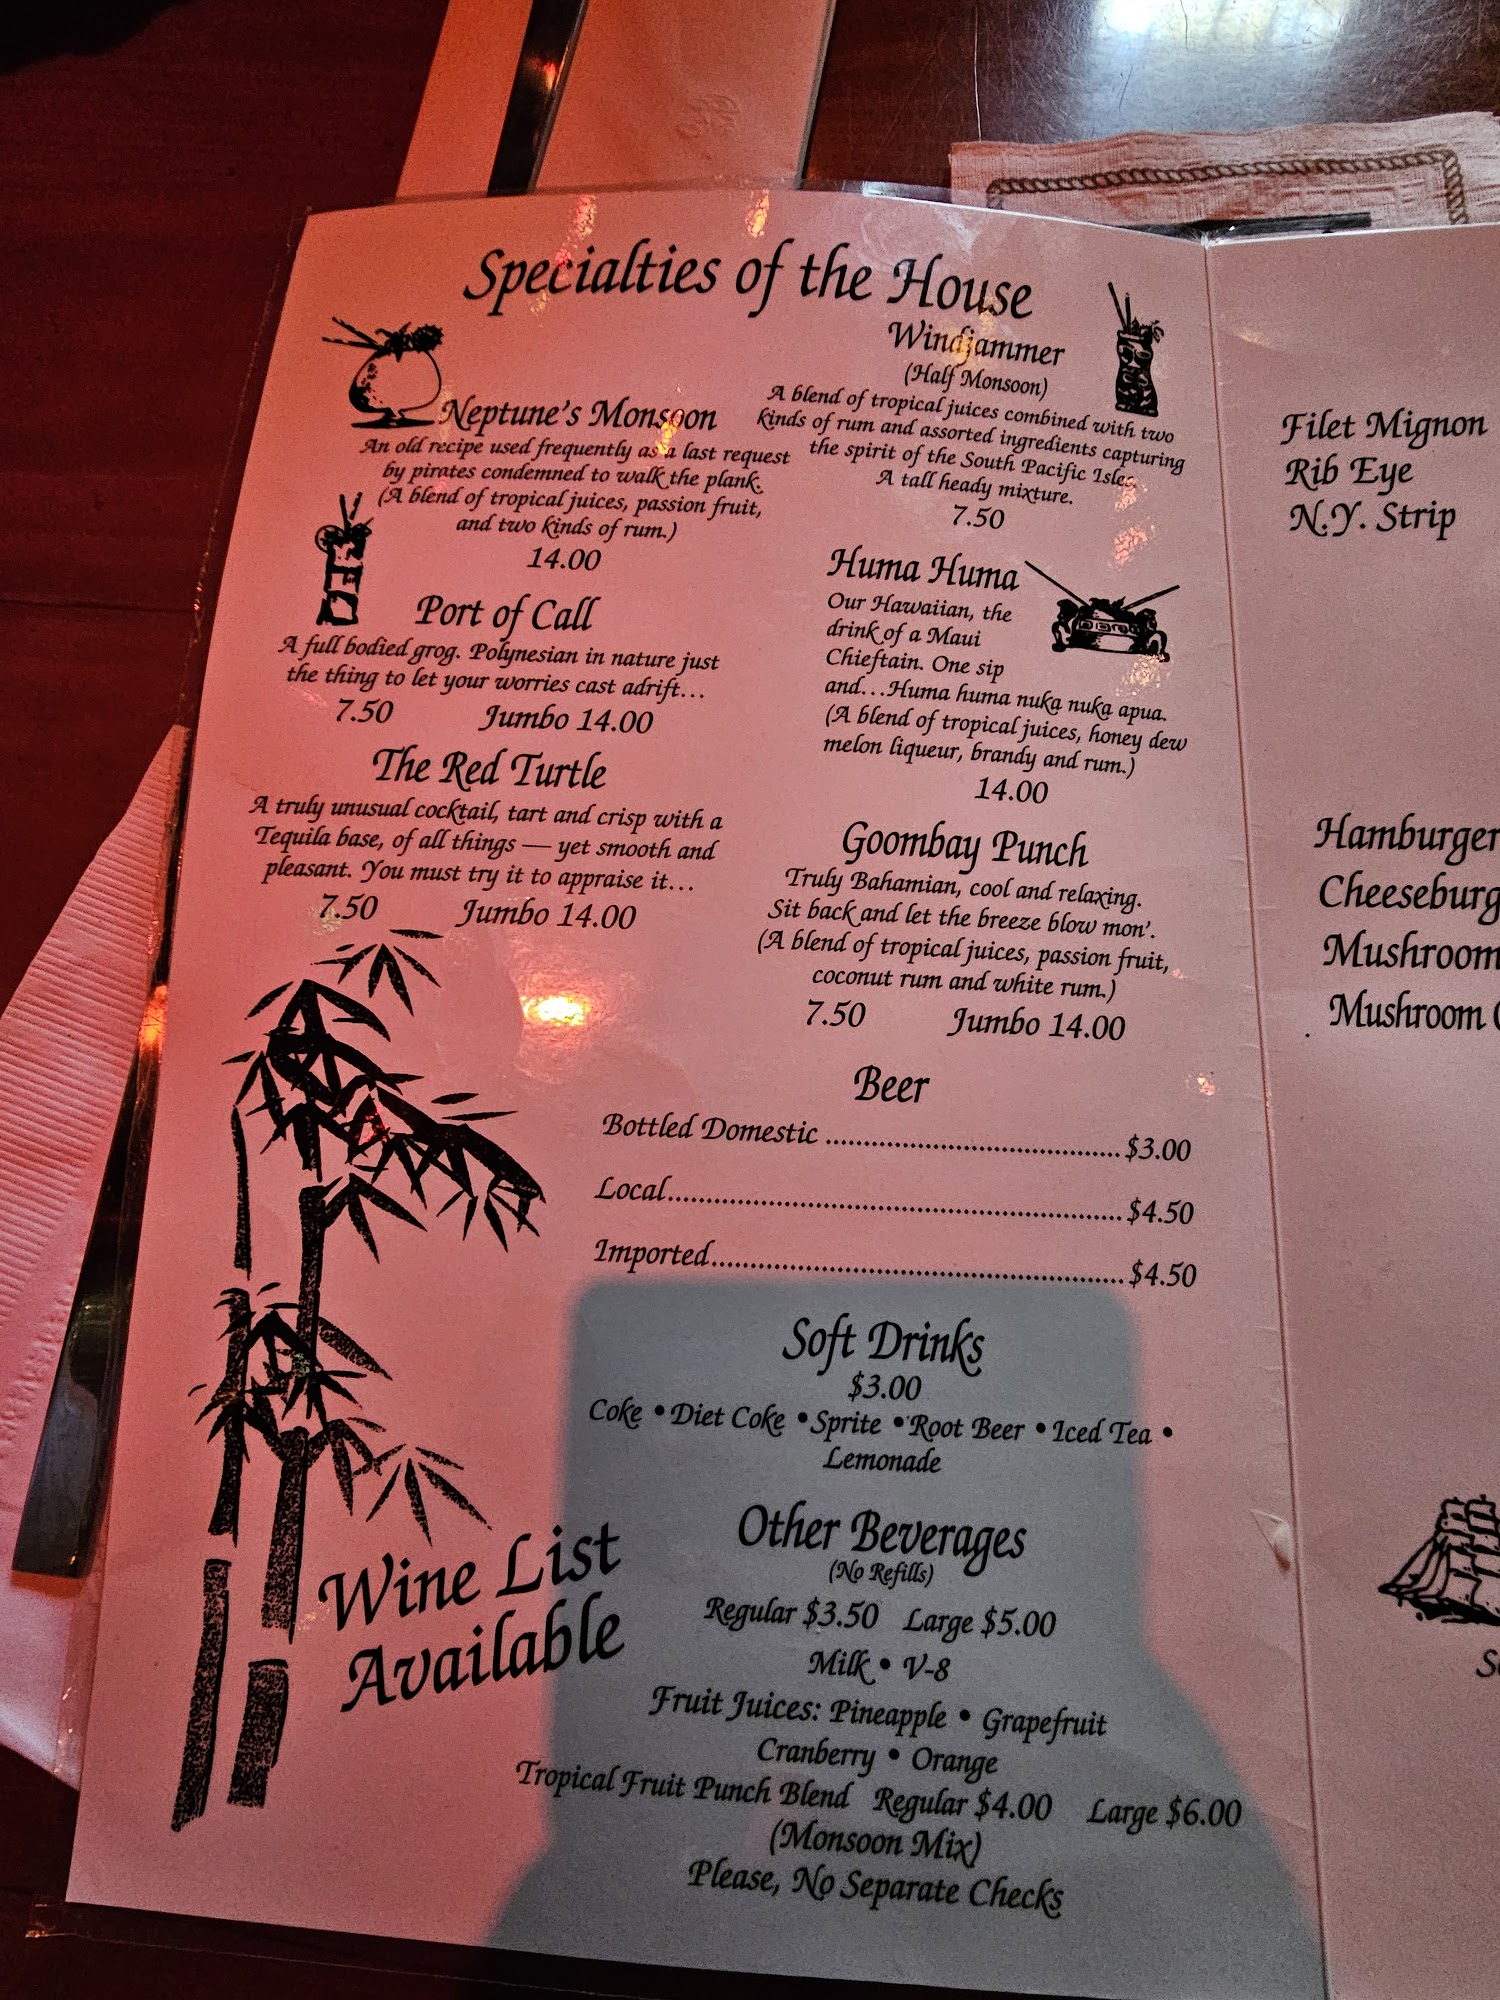 Specialties of the House
Neptune's Monsoon
An old recipe used frequently as a last request
by pirates condemned to walk the plank.
(A blend of tropical juices, passion fruit,
and two kinds of rum.)
14.00
Port of Call
A full bodied grog. Polynesian in nature just
the thing to let your worries cast adrift...
7.50 Jumbo 14.00
The Red Turtle
A truly unusual cocktail, tart and crisp with a
Tequila base, of all things — yet smooth and
pleasant. You must try it to appraise it...
7.50 Jumbo 14.00
Windjammer
(Half Monsoon)
A blend of tropical juices combined with two
kinds of rum and assorted ingredients capturing
the spirit of the South Pacific Isles.
A tall heady mixture.
7.50
Huma Huma
Our Hawaiian, the
drink of a Maui
Chieftain. One sip
and...Huma huma nuka nuka apua.
(A blend of tropical juices, honey dew
melon liqueur, brandy and rum.)
14.00
Goombay Punch
Truly Bahamian, cool and relaxing.
Sit back and let the breeze blow mon'.
(A blend of tropical juices, passion fruit,
coconut rum and white rum.)
7.50 Jumbo 14.00
Beer
Bottled Domestic ........................................ $3.00
Local............................................................ $4.50
Imported....................................................... $4.50
Soft Drinks
$3.00
Coke • Diet Coke • Sprite • Root Beer • Iced Tea •
Lemonade
Other Beverages
(No Refills)
Regular $3.50 Large $5.00
Milk • V-8
Fruit Juices: Pineapple • Grapefruit
Cranberry • Orange
Tropical Fruit Punch Blend Regular $4.00 Large $6.00
(Monsoon Mix)
Please, No Separate Checks
Wine List
Available
Filet Mignon
Rib Eye
N.Y. Strip
Hamburger
Cheeseburg
Mushroom
Mushroom